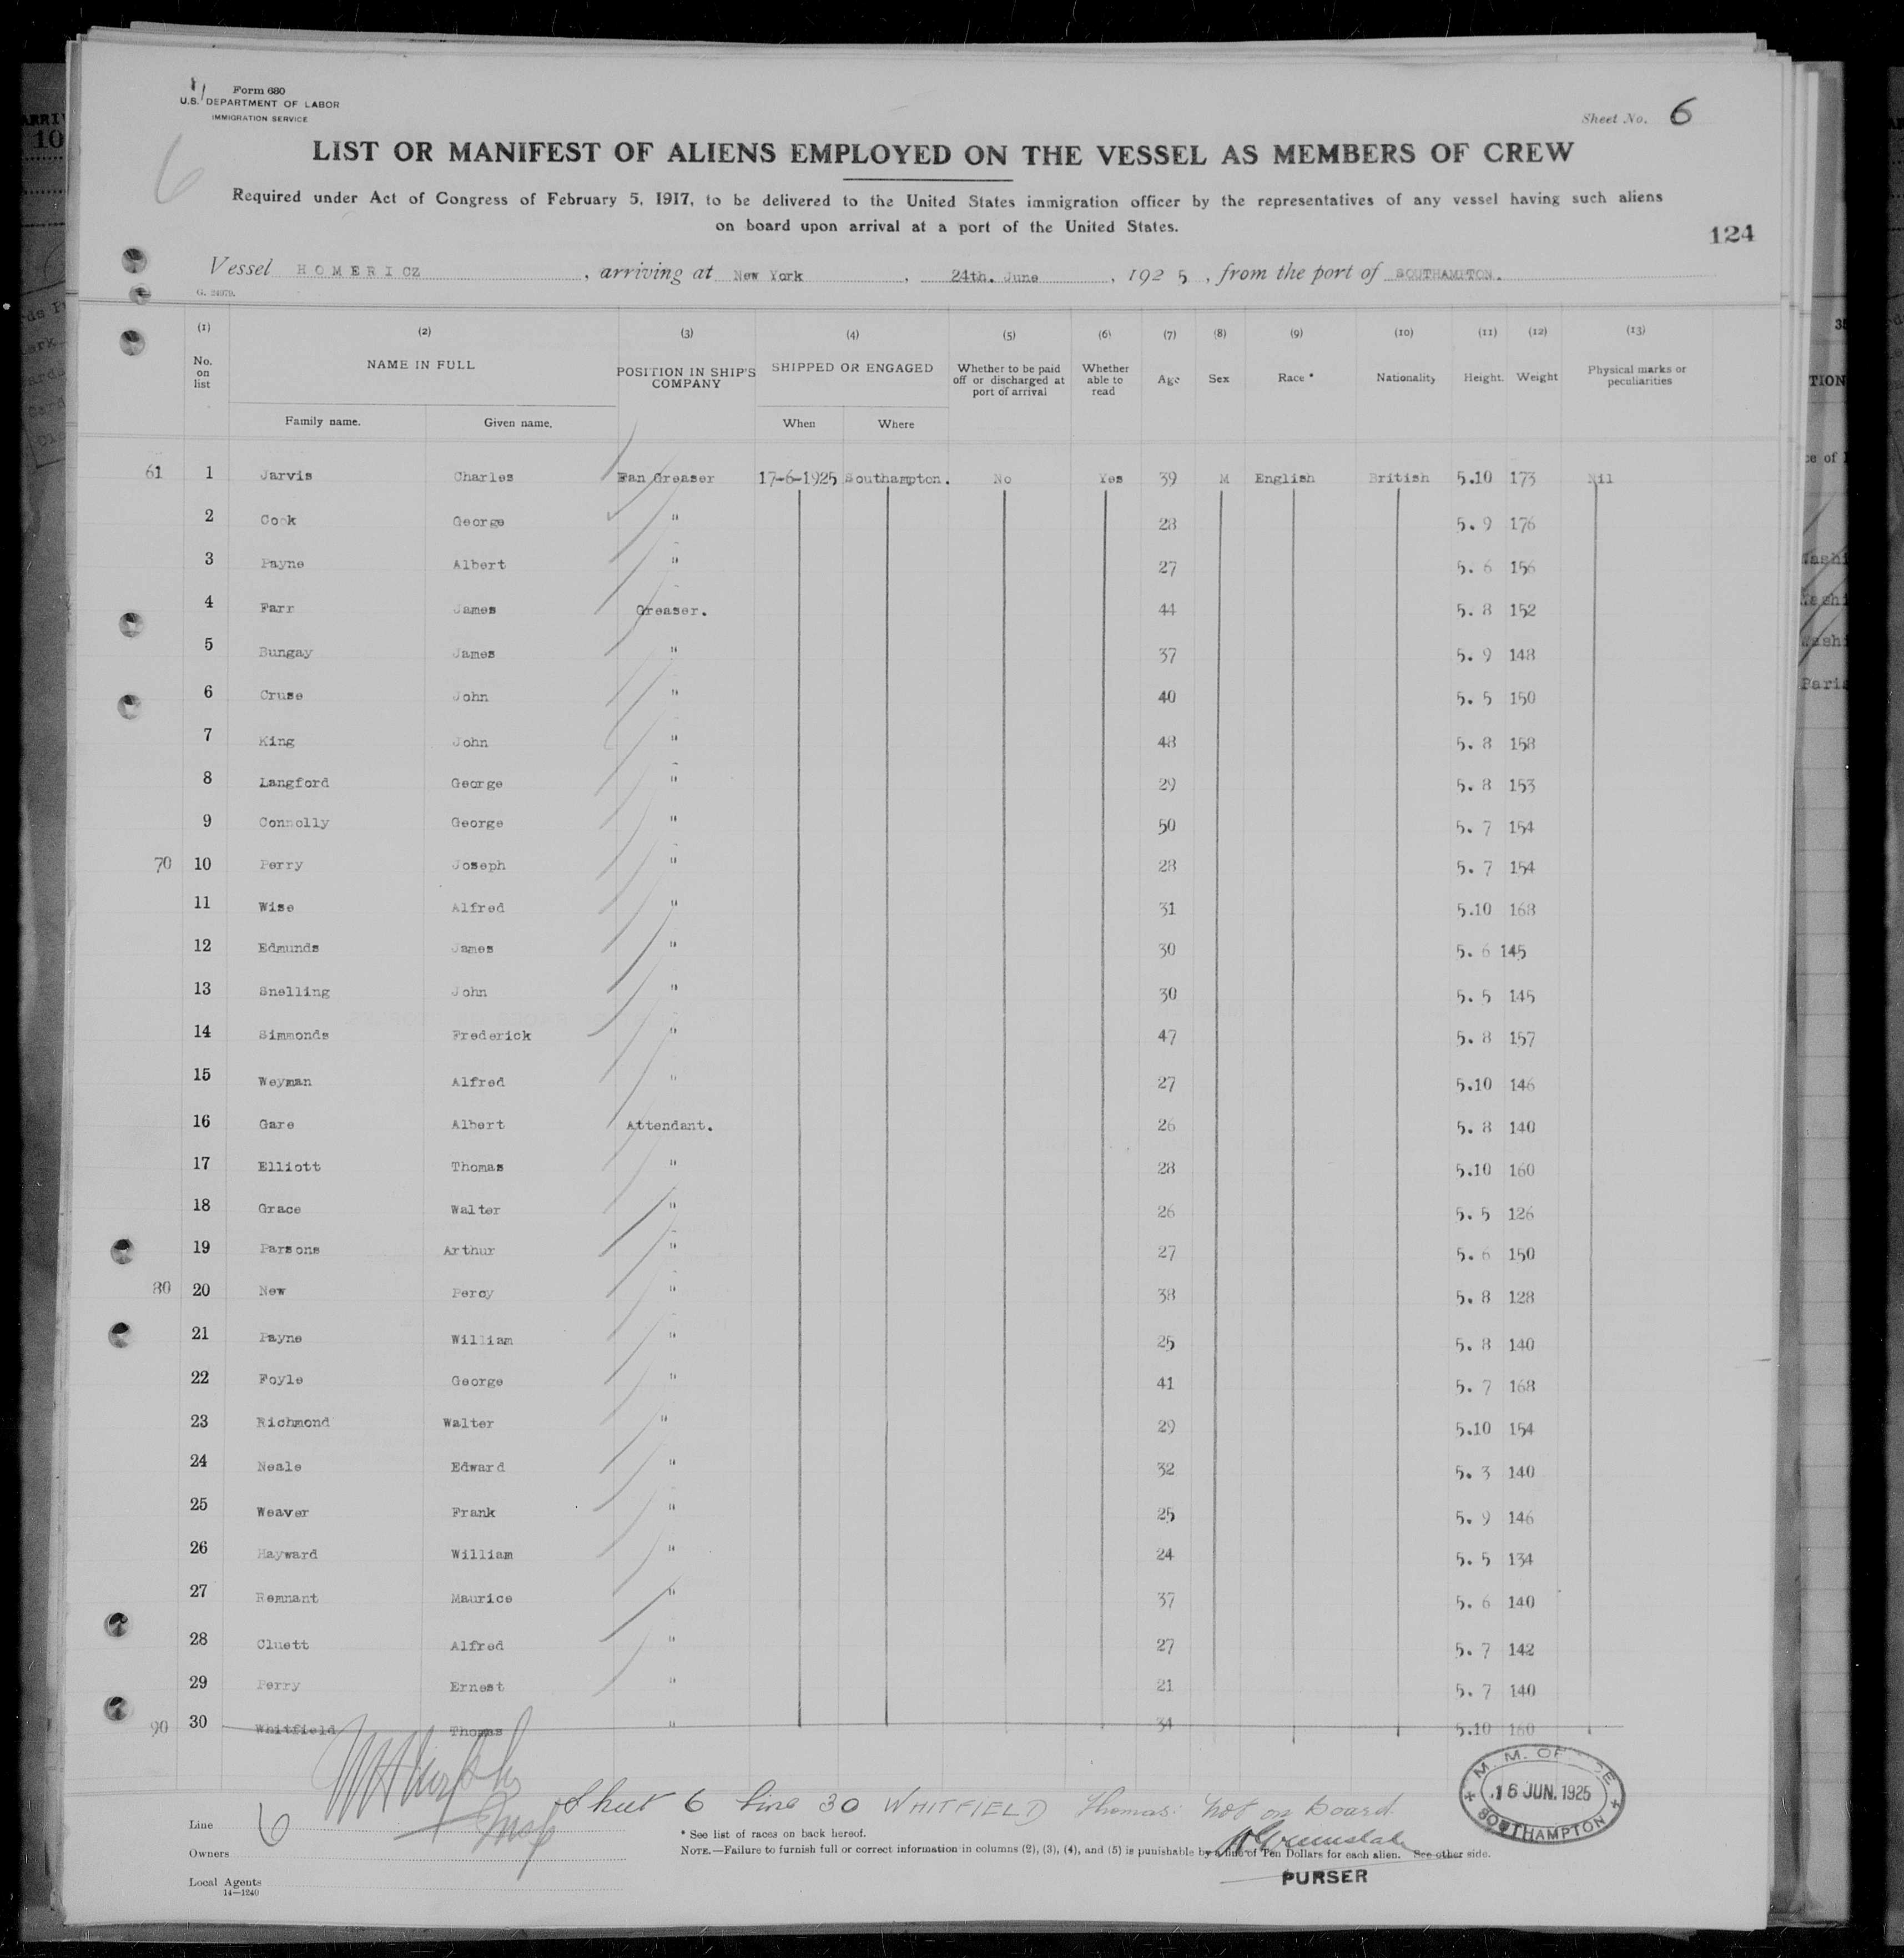 Form 680
U.S. DEPARTMENT OF LABOR
IMMIGRATION SERVICE
Sheet No. 6
6
LIST OR MANIFEST OF ALIENS EMPLOYED ON THE VESSEL AS MEMBERS OF CREW
Required under Act of Congress of February 5, 1917, to be delivered to the United States immigration officer by the representatives of any vessel having such aliens
on board upon arrival at a port of the United States.
124
Vessel HOMERICZ, arriving at New York, 24th. June, 1925, from the port of SOUTHAMPTON.
G. 24079.
(1) (2) (3) (4) (5) (6) (7) (8) (9) (10) (11) (12) (13)
No. on list NAME IN FULL POSITION IN SHIP'S COMPANY SHIPPED OR ENGAGED Whether to be paid off or discharged at port of arrival Whether able to read Age Sex Race * Nationality Height. Weight Physical marks or peculiarities
Family name. Given name. When Where
61 1 Jarvis Charles Fan Greaser 17-6-1925 Southampton. No Yes 39 M English British 5.10 173 Nil
2 Cook George " 28 5. 9 176
3 Payne Albert " 27 5. 6 156
4 Farr James Greaser. 44 5. 8 152
5 Bungay James " 37 5. 9 148
6 Cruse John " 40 5. 5 150
7 King John " 48 5. 8 158
8 Langford George " 29 5. 8 153
9 Connolly George " 50 5. 7 154
70 10 Perry Joseph " 28 5. 7 154
11 Wise Alfred " 31 5.10 168
12 Edmunds James " 30 5. 6 145
13 Snelling John " 30 5. 5 145
14 Simmonds Frederick " 47 5. 8 157
15 Weyman Alfred " 27 5.10 146
16 Gare Albert Attendant. 26 5. 8 140
17 Elliott Thomas " 28 5.10 160
18 Grace Walter " 26 5. 5 126
19 Parsons Arthur " 27 5. 6 150
80 20 New Percy " 38 5. 8 128
21 Payne William " 25 5. 8 140
22 Foyle George " 41 5. 7 168
23 Richmond Walter " 29 5.10 154
24 Neale Edward " 32 5. 3 140
25 Weaver Frank " 25 5. 9 146
26 Hayward William " 24 5. 5 134
27 Remnant Maurice " 37 5. 6 140
28 Cluett Alfred " 27 5. 7 142
29 Perry Ernest " 21 5. 7 140
90 30 Whitfield Thomas " 34 5.10 160
M. M. OFFICE
16 JUN. 1925
SOUTHAMPTON
Sheet 6 line 30 WHITFIELD Thomas: not on board
Line 6
* See list of races on back hereof.
Owners
NOTE.—Failure to furnish full or correct information in columns (2), (3), (4), and (5) is punishable by a fine of Ten Dollars for each alien. See other side.
PURSER
Local Agents
14—1240